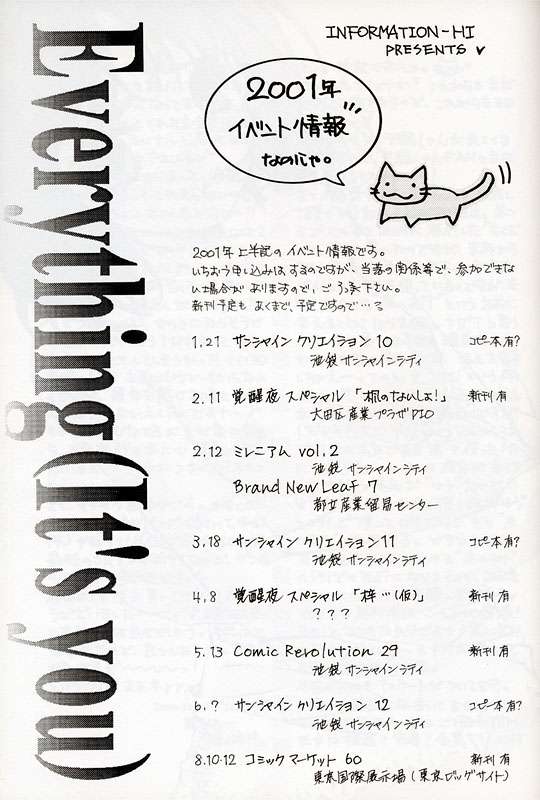 Everything (It's you)
INFORMATION-HI
PRESENTS
2001年
イベント情報
なのじゃ。
2001年上半記のイベント情報です。
いちおう申し込みは、するのですが、当落の関係等で、参加できな
い場合がありますので、ご了承下さい。
新刊予定もあくまで、予定ですので…
1.21 サンシャイン クリエイション 10 コピー本有?
池袋 サンシャインシティ
2.11 覚醒夜 スペシャル 「楓のないしょ!」 新刊 有
大田区産業プラザPIO
2.12 ミレニアム vol.2
池袋 サンシャインシティ
Brand New Leaf 7
都立産業貿易センター
3.18 サンシャイン クリエイション 11 コピー本有?
池袋 サンシャインシティ
4.8 覚醒夜 スペシャル 「梓…(仮)」 新刊 有
???
5.13 Comic Revolution 29 新刊 有
池袋 サンシャインシティ
6.? サンシャイン クリエイション 12 コピー本有?
池袋 サンシャインシティ
8.10-12 コミックマーケット 60 新刊 有
東京国際展示場 (東京ビッグサイト)